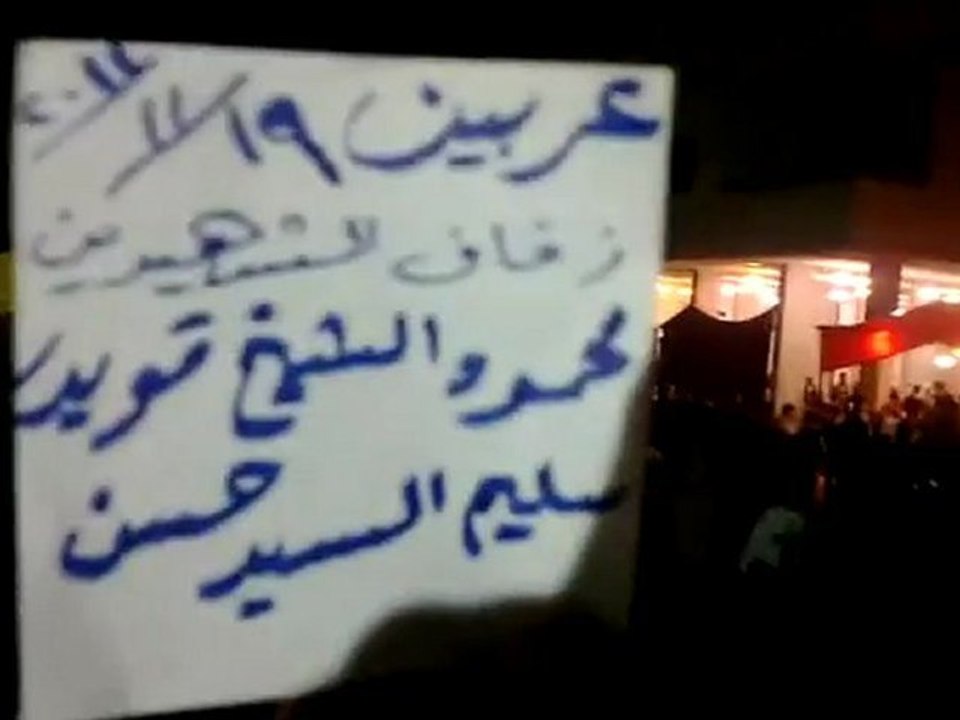 عربين ١٩/١١/٢٠١١
زفاف الشهيدين
محمود الشيخ قويدر
سليم السيد حسن